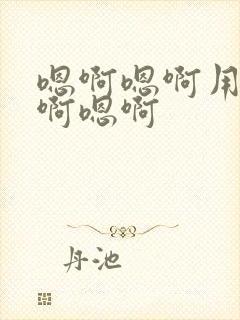 嗯啊嗯啊用
啊嗯啊
丹池